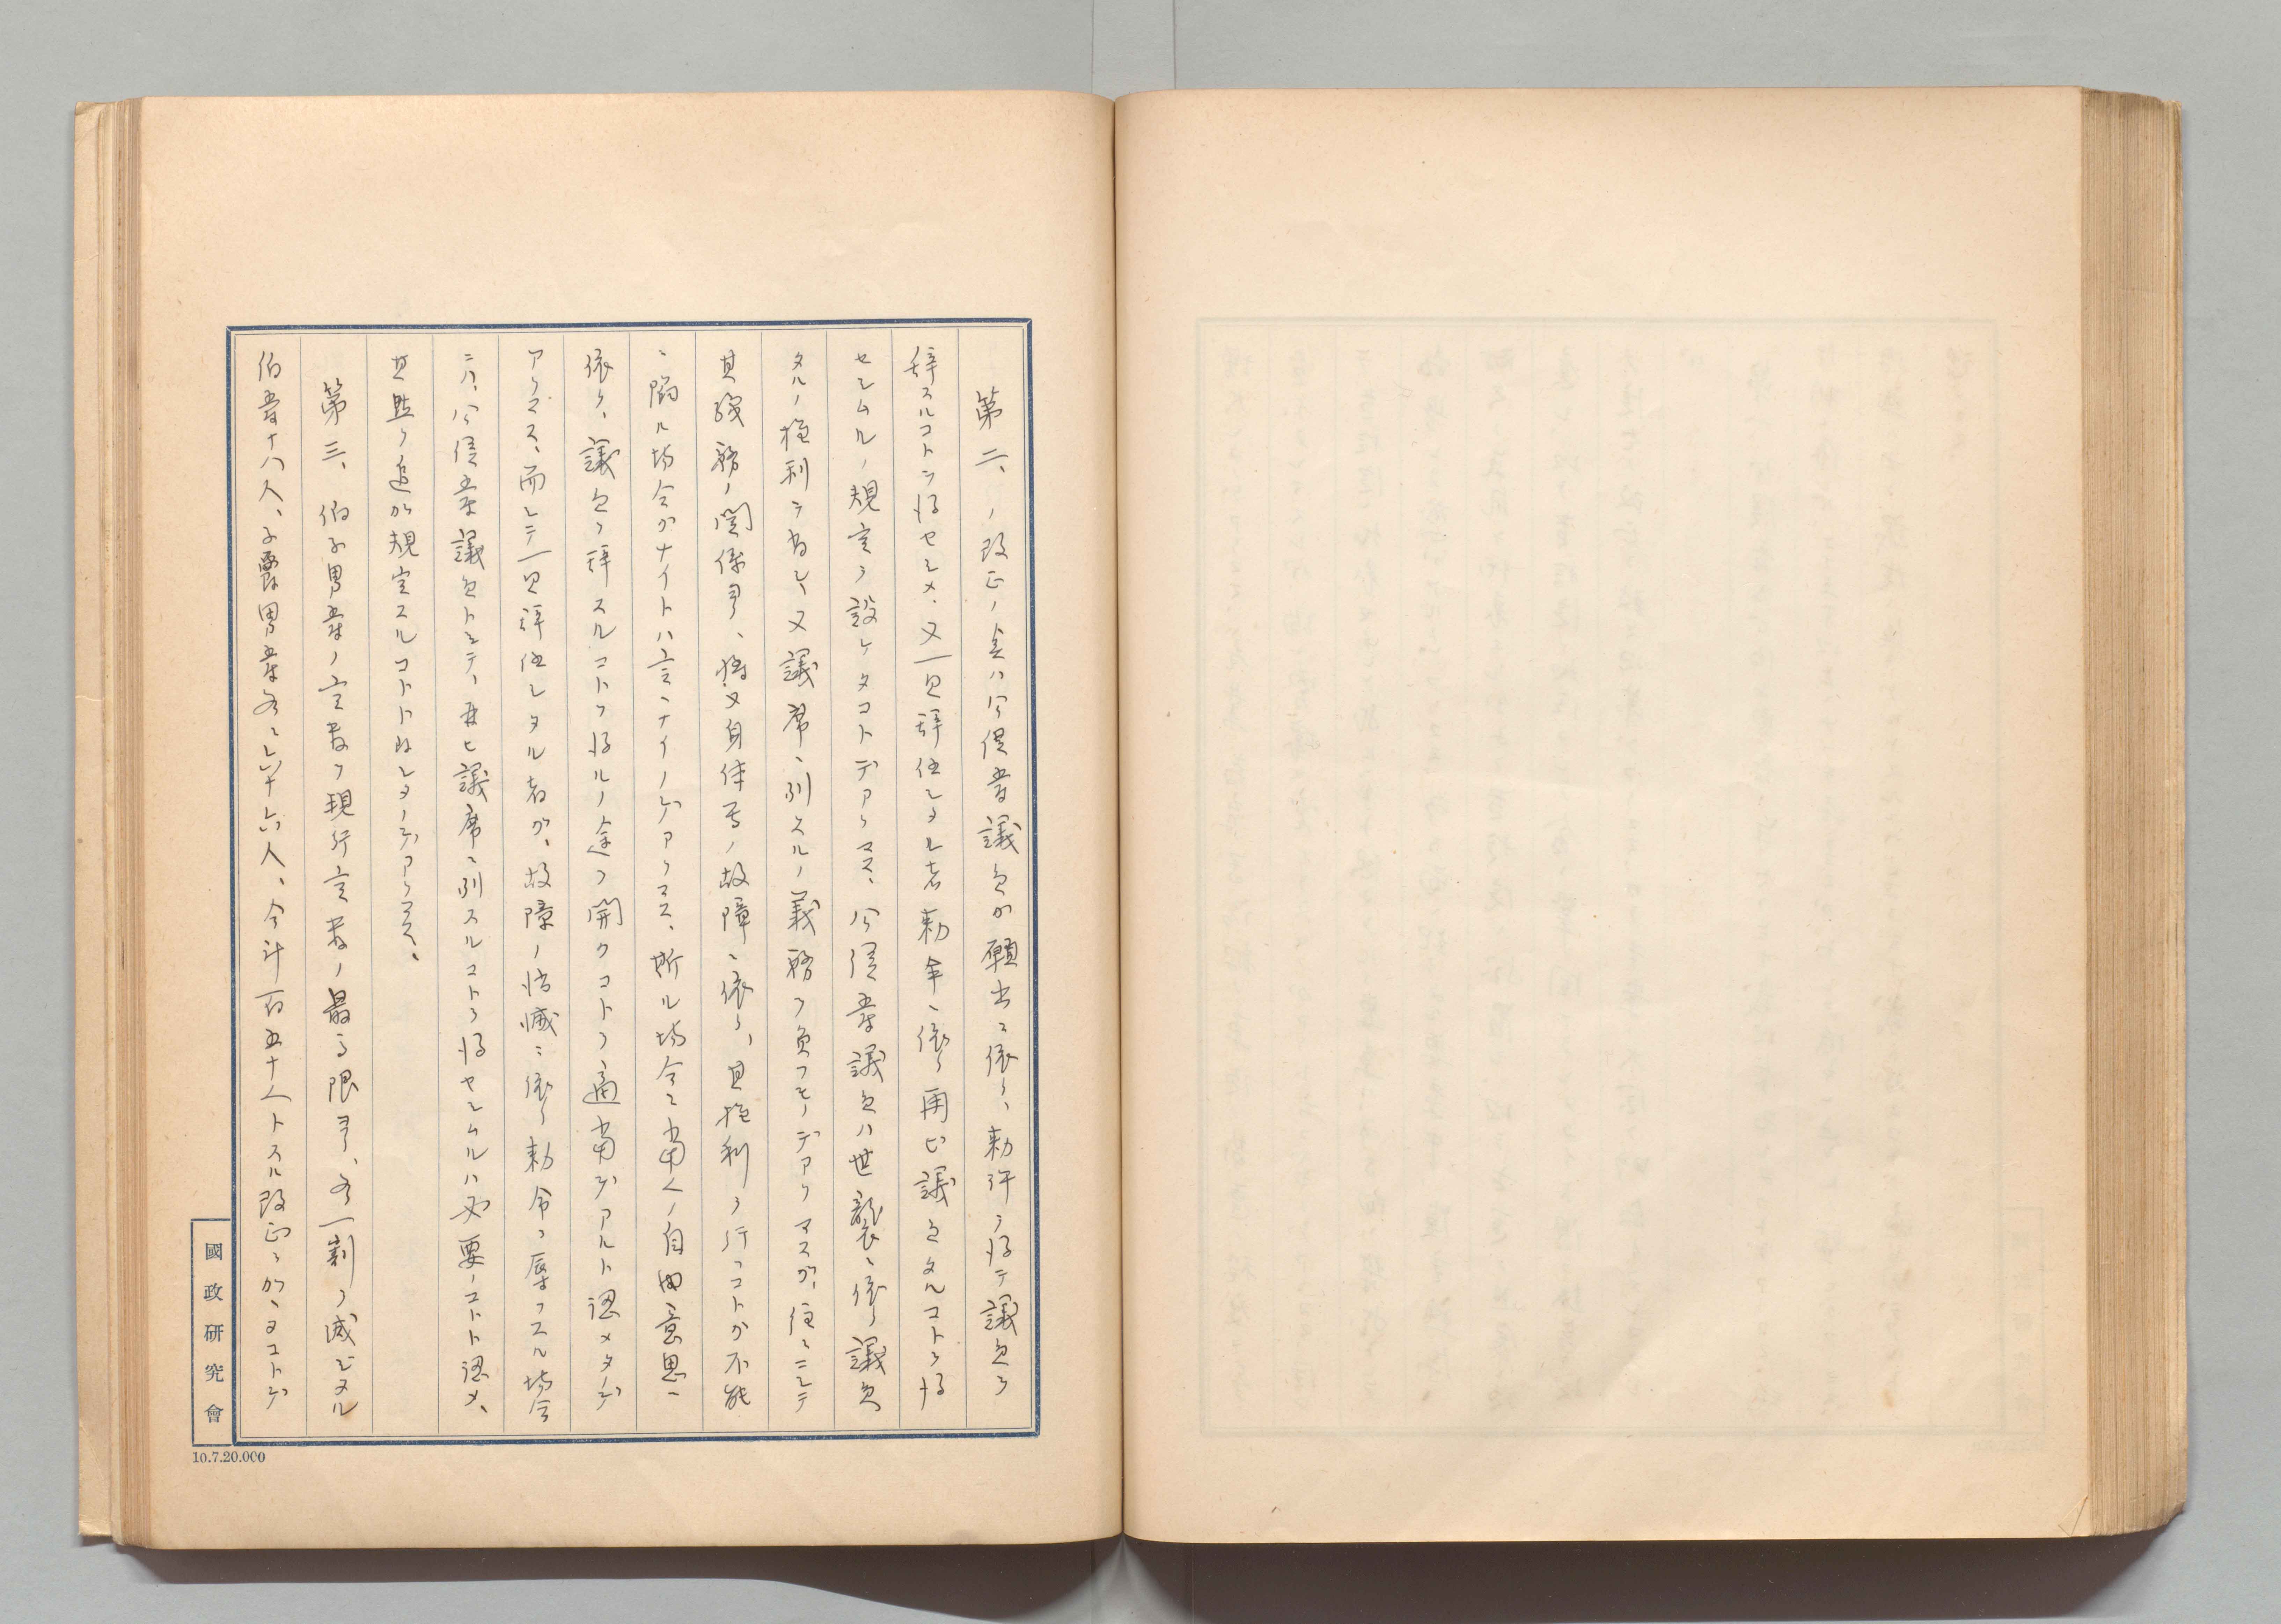 第二、ノ改正ノ点ハ公侯爵議員が願出ニ依リ、勅許ヲ得テ議員ヲ
辞スルコトヲ得セシメ、又一旦辞任シタル者勅命ニ依リ再ビ議員タルコトヲ得
セシムルノ規定ヲ設ケタコトデアリマス、公侯爵議員ハ世襲ニ依リ議員
タルノ権利ヲ有シ、又議席ニ列スルノ義務ヲ負フモノデアリマスガ、往々ニシテ
其職務ノ関係男、将又身体等ノ故障ニ依リ、其権利ヲ行フコトガ不能
ニ陥ル場合ガナイトハ言ヘナイノデアリマス、斯ル場合ニ当人ノ自由意思ニ
依リ、議員ヲ辞スルコトヲ得ルノ途ヲ開クコトヲ適当デアルト認メタノデ
アリマス、而シテ一旦辞任シタル者ガ、故障ノ消滅ニ依リ勅命ヲ辱フスル場合
ニハ、公侯爵議員トシテ、再ビ議席ニ列スルコトヲ得セシムルハ必要ノコトト認メ、
其点ヲ追加規定スルコトト致シタノデアリマス、
第三、伯子男爵ノ定数ヲ現行定数ノ最高限ヨリ、各一割ヲ減ジタル
伯爵十八人、子爵男爵各々六十六人、合計百五十人トスル改正ヲ加ヘタコトデ
國政研究會
10.7.20.000